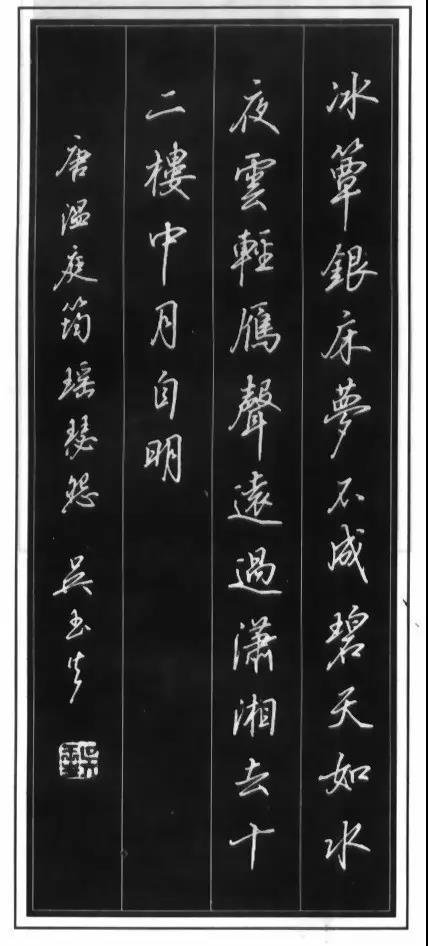 冰簟銀床夢不成碧天如水
夜雲輕雁聲遠過瀟湘去十
二樓中月自明
唐溫庭筠瑤瑟怨 吳玉生